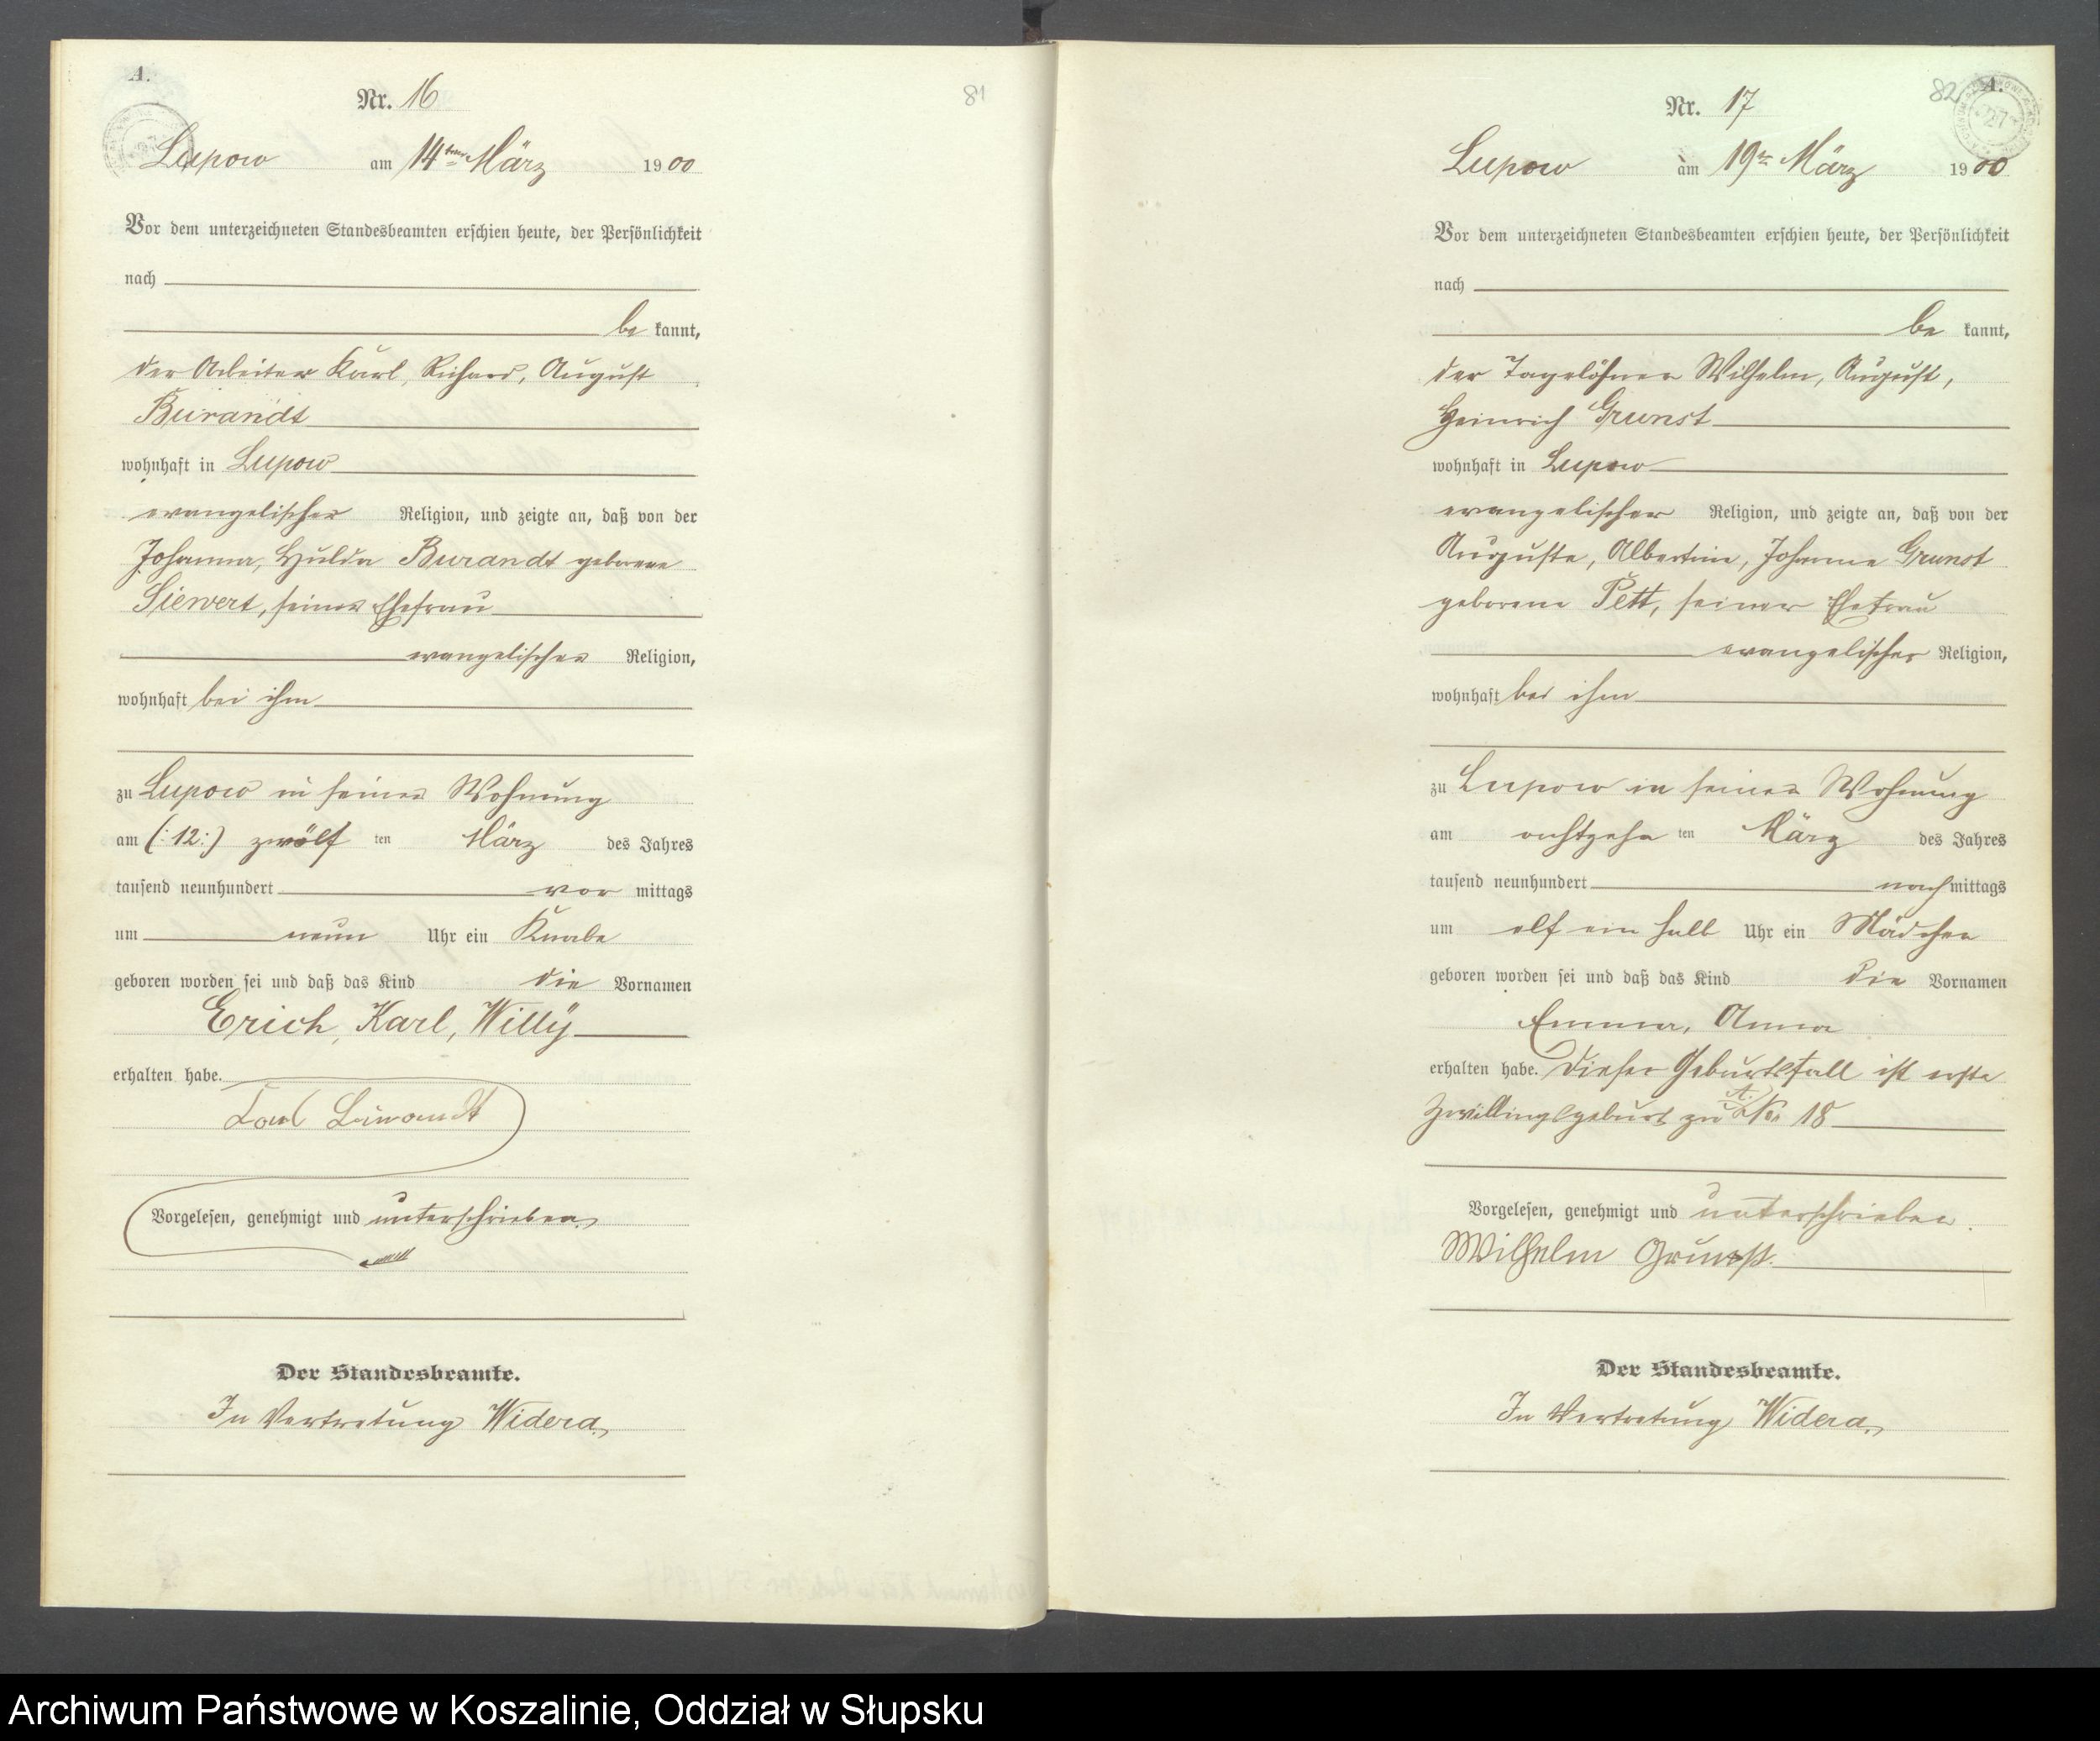 A.
Nr. 16
81
Lupow am 14ten März 1900
Vor dem unterzeichneten Standesbeamten erschien heute, der Persönlichkeit
nach
be kannt,
der Arbeiter Karl, Richard, August
Burandt
wohnhaft in Lupow
evangelischer Religion, und zeigte an, daß von der
Johanna, Hulda Burandt geborene
Siewert, seiner Ehefrau
evangelischer Religion,
wohnhaft bei ihm
zu Lupow in seiner Wohnung
am (:12:) zwölf ten März des Jahres
tausend neunhundert vor mittags
um neun Uhr ein Knabe
geboren worden sei und daß das Kind die Vornamen
Erich, Karl, Willÿ
erhalten habe.
Karl Burandt
Vorgelesen, genehmigt und unterschrieben
Der Standesbeamte.
In Vertretung Widera.
82
A.
27
Nr. 17
Lupow am 19ten März 1900
Vor dem unterzeichneten Standesbeamten erschien heute, der Persönlichkeit
nach
be kannt,
der Tagelöhner Wilhelm, August,
Heinrich Grunst
wohnhaft in Lupow
evangelischer Religion, und zeigte an, daß von der
Auguste, Albertine, Johanne Grunst
geborene Pett, seiner Ehefrau
evangelischer Religion,
wohnhaft bei ihm
zu Lupow in seiner Wohnung
am achtzehn ten März des Jahres
tausend neunhundert nach mittags
um elf ein halb Uhr ein Mädchen
geboren worden sei und daß das Kind die Vornamen
Emma, Anna
erhalten habe. Dieser Geburtsfall ist erste
Zwillingsgeburt zu A. No 18
Vorgelesen, genehmigt und unterschrieben.
Wilhelm Grunst.
Der Standesbeamte.
In Vertretung Widera.
Archiwum Państwowe w Koszalinie, Oddział w Słupsku